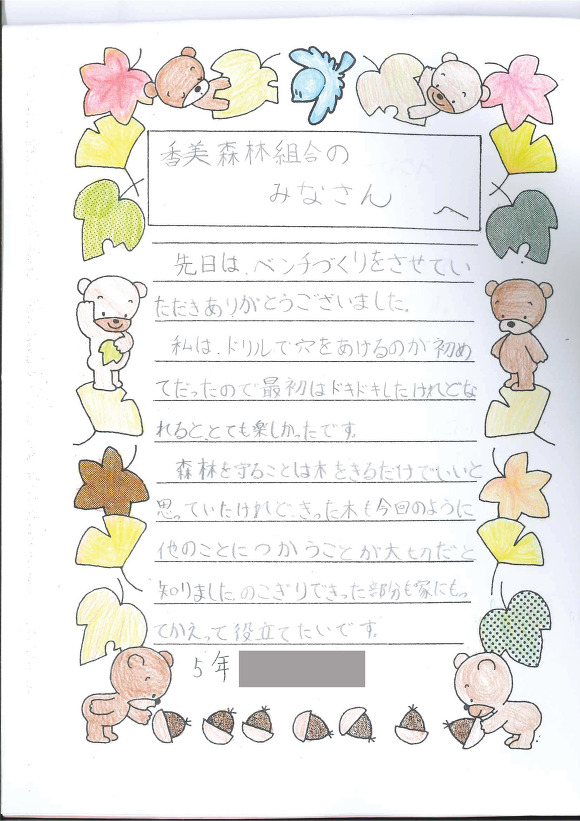 香美森林組合の
みなさん
へ
先日は、ベンチづくりをさせてい
ただきありがとうございました。
私は、ドリルで穴をあけるのが初め
てだったので最初はドキドキしたけれどな
れると、とても楽しかったです。
森林を守ることは木をきるだけでいいと
思っていたけれど、きった木も今回のように
他のことにつかうことが大切だと
知りました。のこぎりできった部分も家にもっ
てかえって役立てたいです。
5年